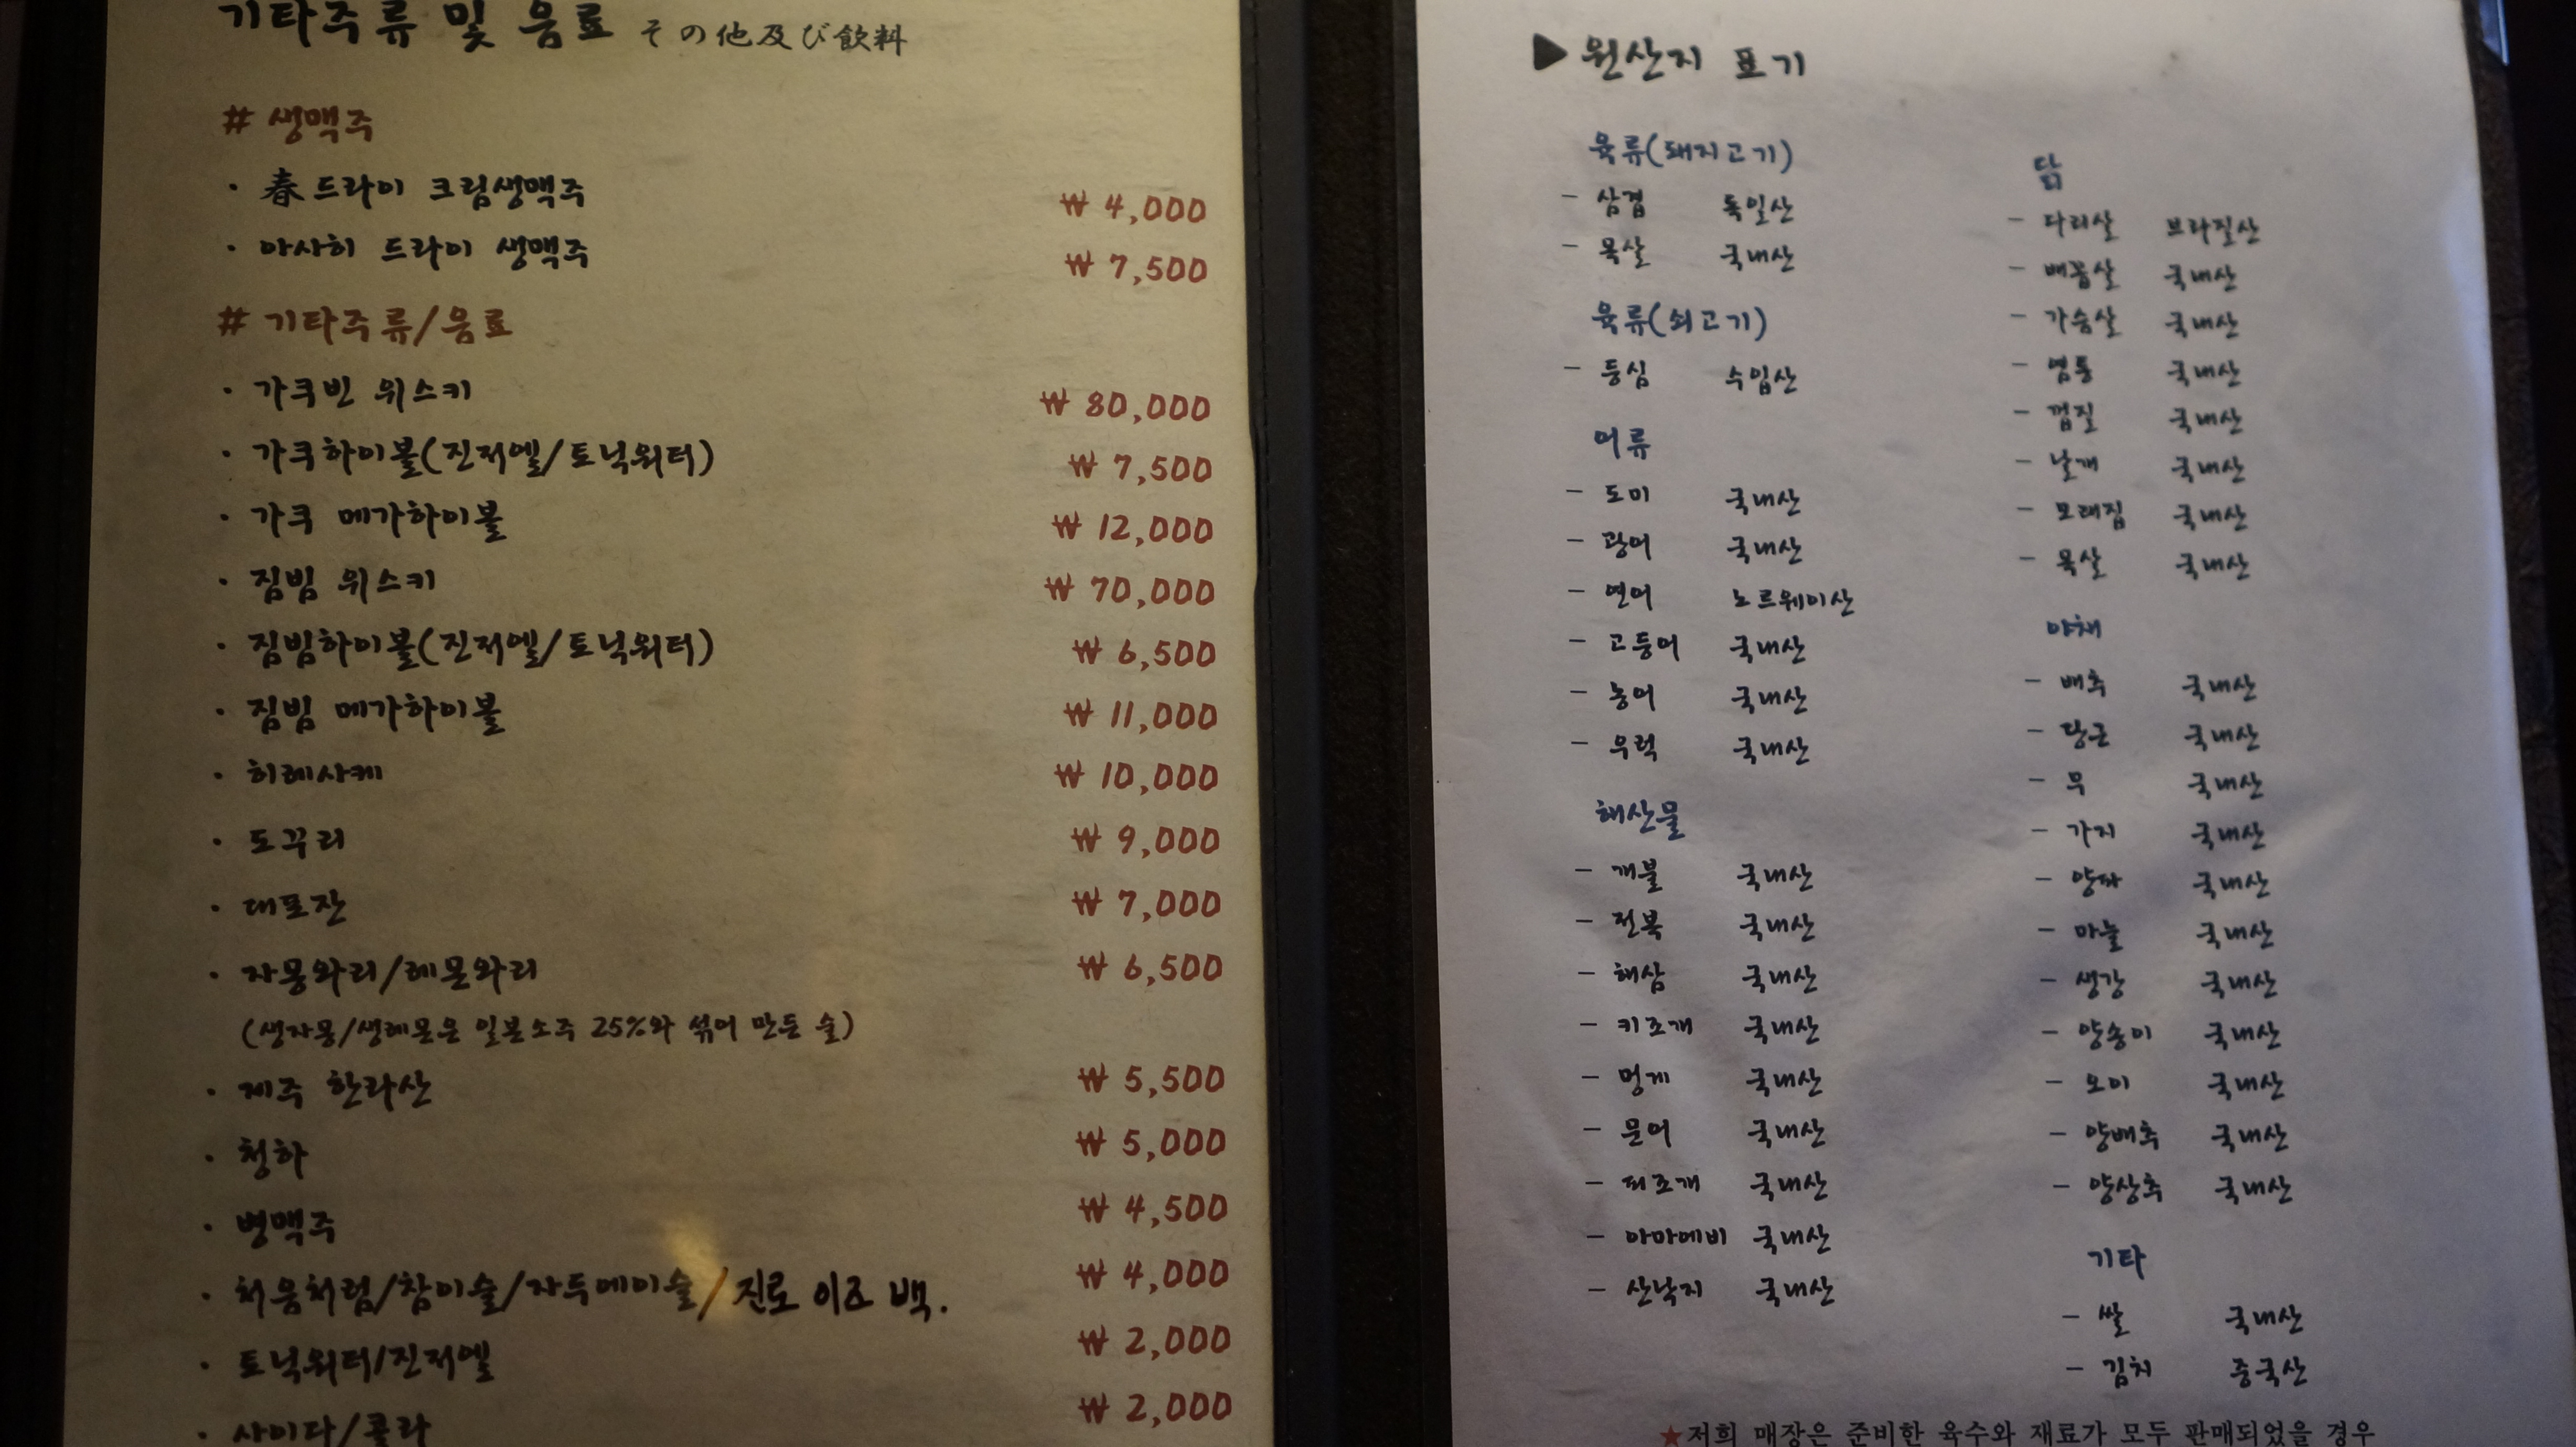 기타주류 및 음료 その他及び飲料
# 생맥주
· 春드라이 크림생맥주 ₩ 4,000
· 아사히 드라이 생맥주 ₩ 7,500
# 기타주류/음료
· 가쿠빈 위스키 ₩ 80,000
· 가쿠하이볼(진저엘/토닉워터) ₩ 7,500
· 가쿠 메가하이볼 ₩ 12,000
· 짐빔 위스키 ₩ 70,000
· 짐빔하이볼(진저엘/토닉워터) ₩ 6,500
· 짐빔 메가하이볼 ₩ 11,000
· 히레사케 ₩ 10,000
· 도꾸리 ₩ 9,000
· 대포잔 ₩ 7,000
· 자몽와리/레몬와리 ₩ 6,500
(생자몽/생레몬은 일본소주 25%와 섞어 만든 술)
· 제주 한라산 ₩ 5,500
· 청하 ₩ 5,000
· 병맥주 ₩ 4,500
· 처음처럼/참이슬/자두에이슬/진로 이즈 백. ₩ 4,000
· 토닉워터/진저엘 ₩ 2,000
· 사이다/콜라 ₩ 2,000
▶ 원산지 표기
육류(돼지고기)
- 삼겹 독일산
- 목살 국내산
육류(쇠고기)
- 등심 수입산
어류
- 도미 국내산
- 광어 국내산
- 연어 노르웨이산
- 고등어 국내산
- 농어 국내산
- 우럭 국내산
해산물
- 개불 국내산
- 전복 국내산
- 해삼 국내산
- 키조개 국내산
- 멍게 국내산
- 문어 국내산
- 피조개 국내산
- 아마에비 국내산
- 산낙지 국내산
닭
- 다리살 브라질산
- 배꼽살 국내산
- 가슴살 국내산
- 염통 국내산
- 껍질 국내산
- 날개 국내산
- 모래집 국내산
- 목살 국내산
야채
- 배추 국내산
- 당근 국내산
- 무 국내산
- 가지 국내산
- 양파 국내산
- 마늘 국내산
- 생강 국내산
- 양송이 국내산
- 오이 국내산
- 양배추 국내산
- 양상추 국내산
기타
- 쌀 국내산
- 김치 중국산
★저희 매장은 준비한 육수와 재료가 모두 판매되었을 경우